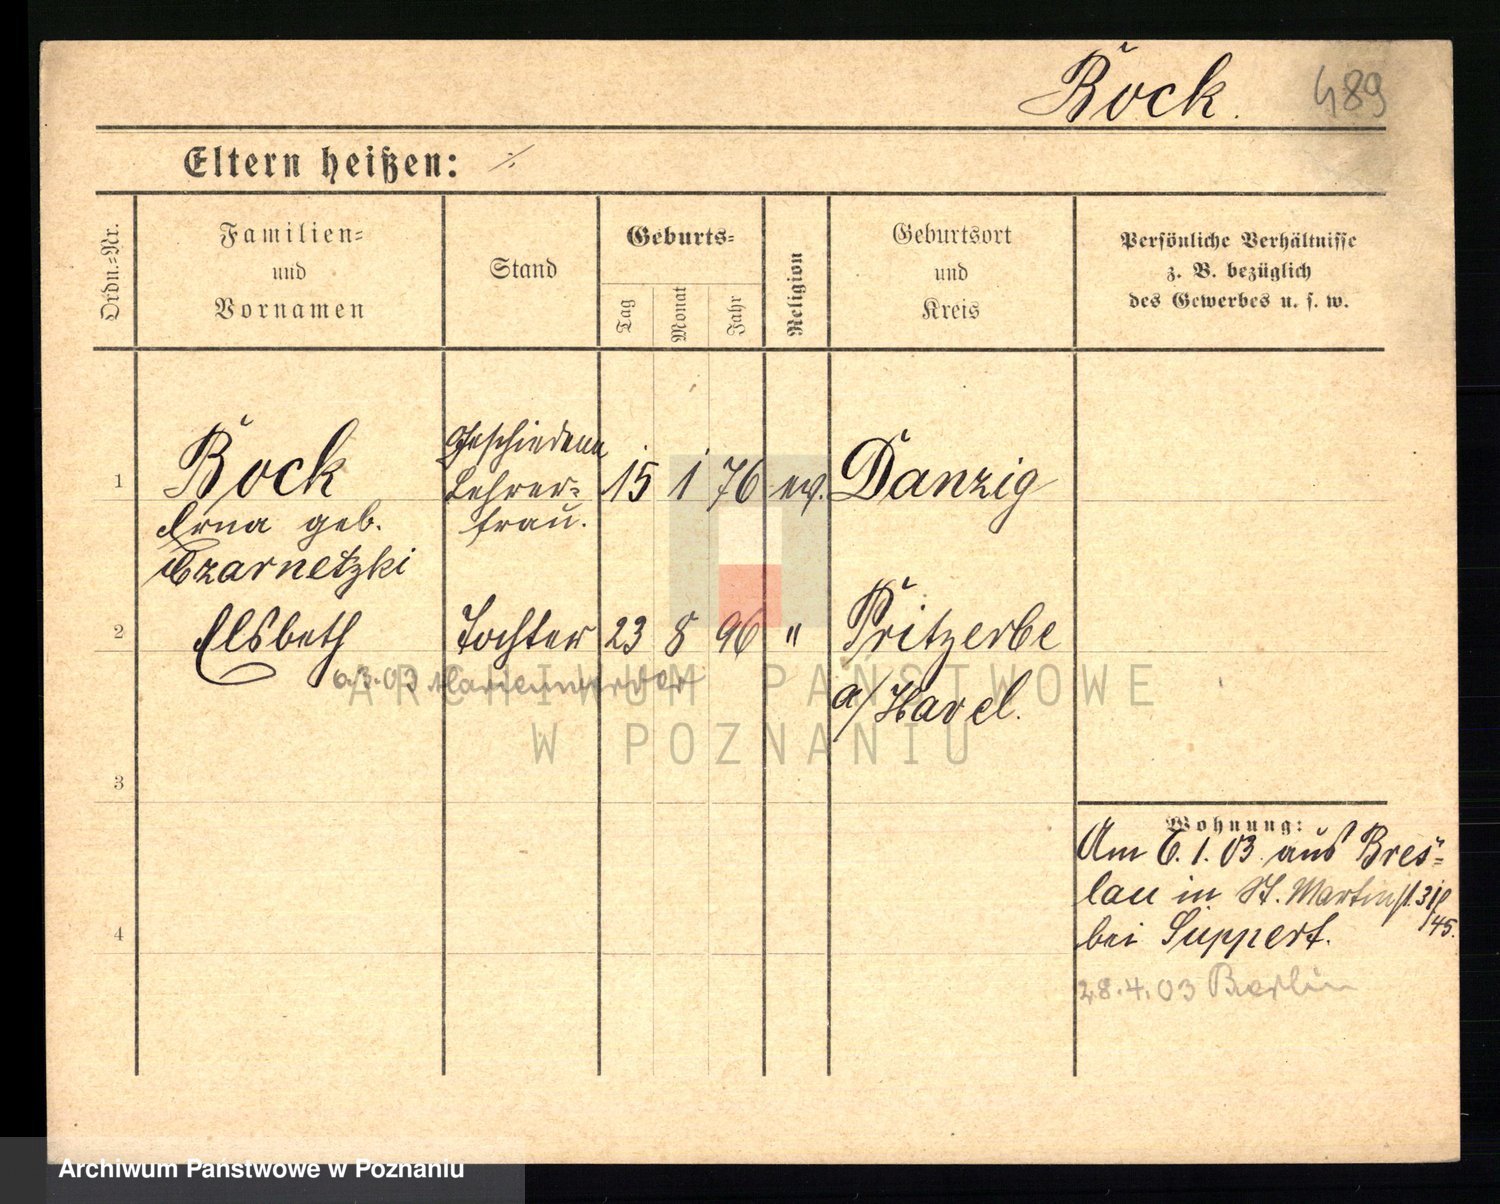 Bock. 489
Eltern heißen: ./.
Ordn.-Nr.
Familien-
und
Vornamen
Stand
Geburts-
Tag
Monat
Jahr
Religion
Geburtsort
und
Kreis
Persönliche Verhältnisse
z. B. bezüglich
des Gewerbes u. s. w.
1 Bock Geschiedene Lehrer- 15 1 76 ev. Danzig
Erna geb. frau.
Czarnetzki
2 Elsbeth Tochter 23 8 96 " Pritzerbe
3.03 Marienwerder
a/Havel.
ARCHIWUM PAŃSTWOWE
W POZNANIU
3
Wohnung:
Am 6.1.03 aus Bres-
lau in St. Martinst.
4
bei Suppert.
28.4.03 Berlin
Archiwum Państwowe w Poznaniu